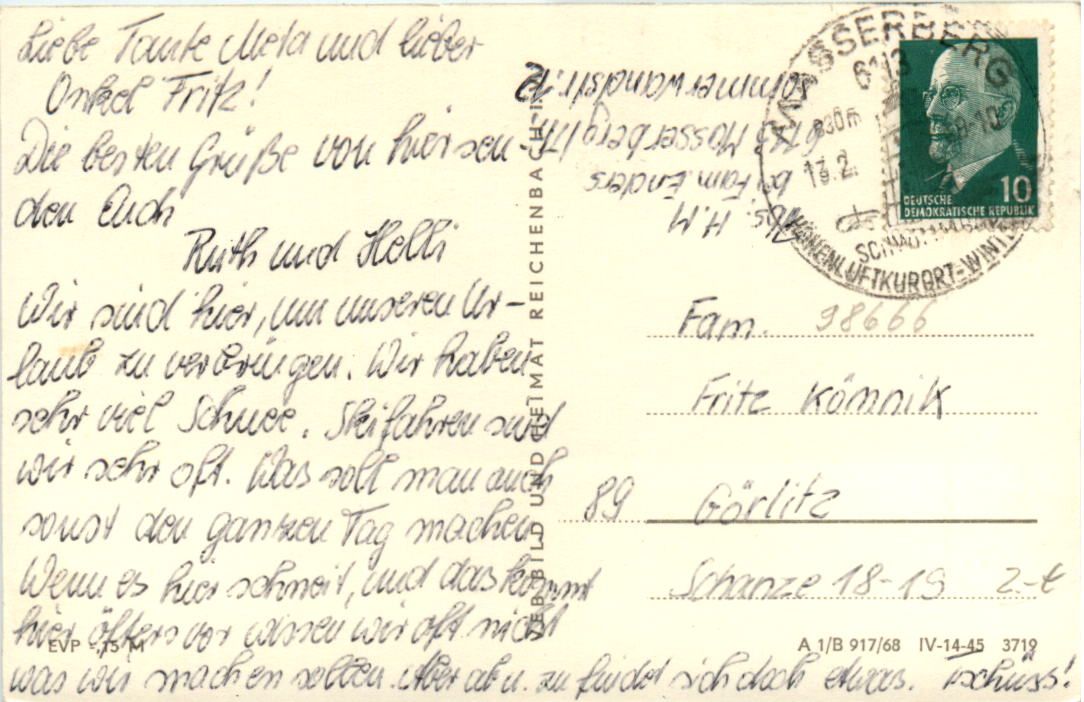 Liebe Tante Meta und lieber
Onkel Fritz!
Die besten Grüße von hier sen-
den Euch
Ruth und Helli
Wir sind hier, um unseren Ur-
laub zu verbringen. Wir haben
sehr viel Schnee. Skifahren sind
wir sehr oft. Was soll man auch
sonst den ganzen Tag machen
Wenn es hier schneit, und das kommt
hier öfters vor wissen wir oft nicht
was wir machen sollen. Aber ab u. zu findet sich doch etwas. Tschüss!
EVP -,15 M
VEB BILD UND HEIMAT REICHENBACH i. V.
Abs. H. M
bei Fam. Enders
Masserberg/Th.
Sommerwandstr. 12
MASSERBERG
6113
830m
13.2.
-10
HÖHENLUFTKURORT-WINT
10
DEUTSCHE
DEMOKRATISCHE REPUBLIK
Fam.
98666
Fritz Kömnik
89 Görlitz
Schanze 18-19
2.-t
A 1/B 917/68 IV-14-45 3719